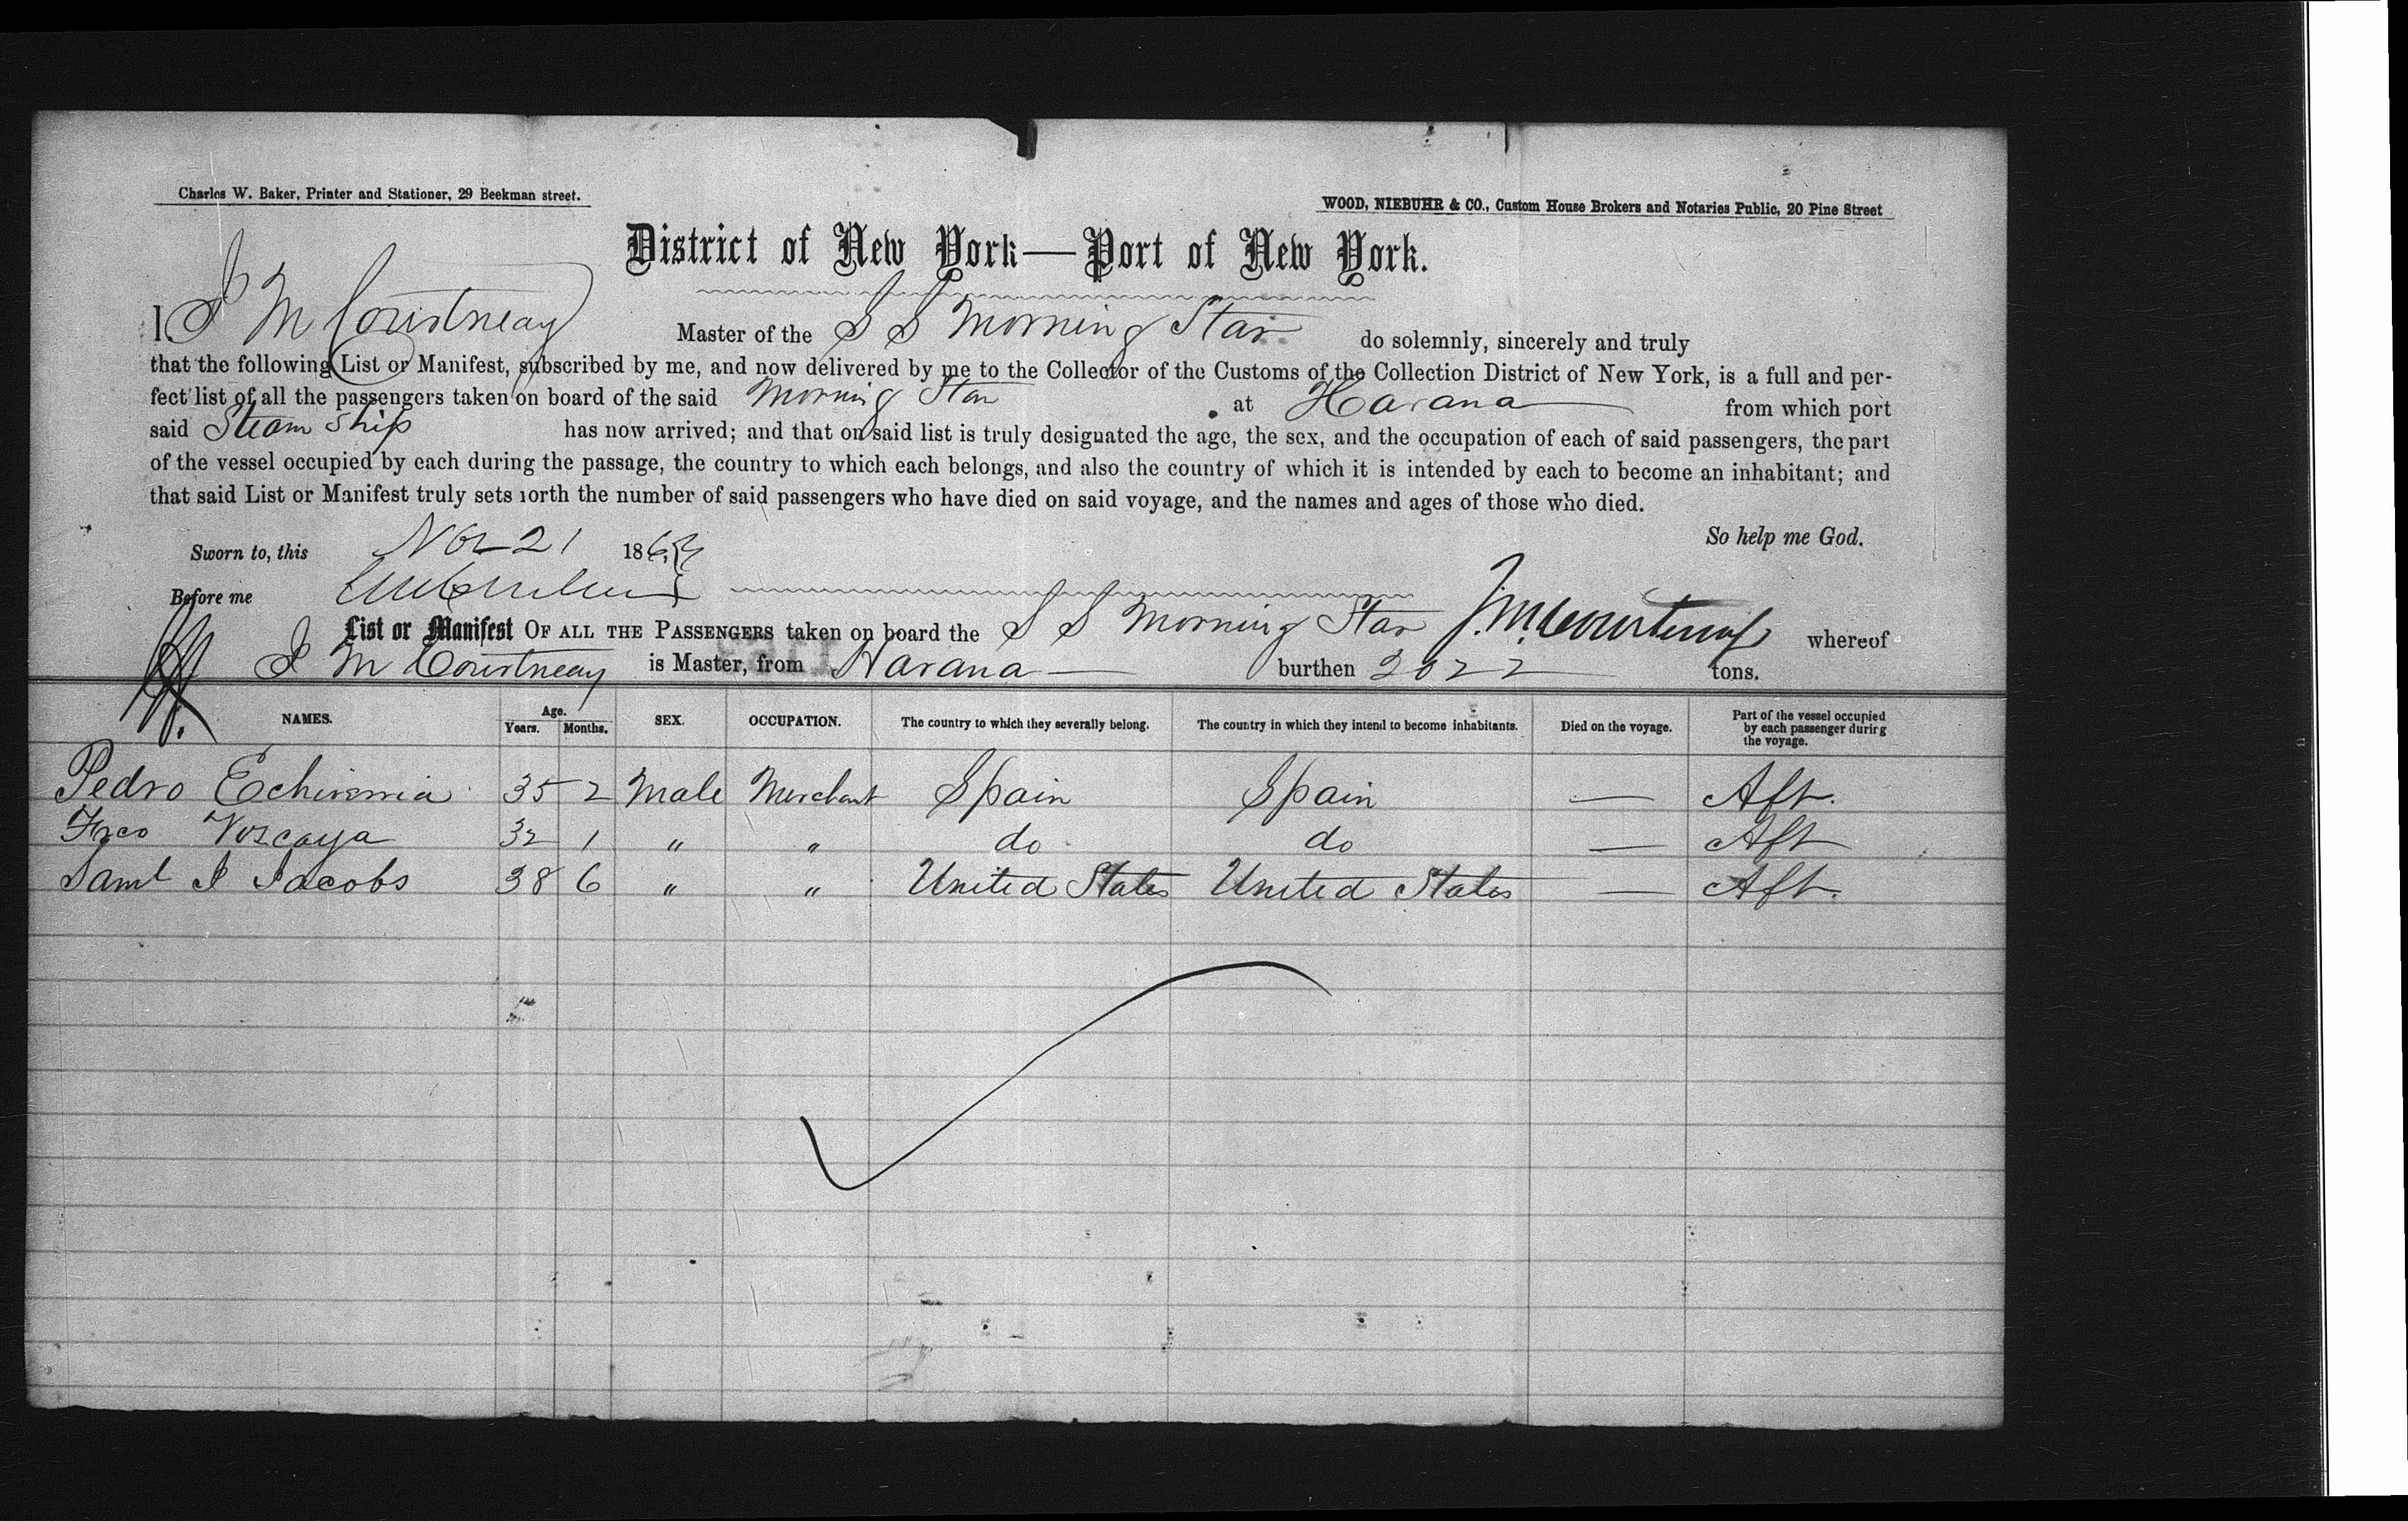 Charles W. Baker, Printer and Stationer, 29 Beekman street.
WOOD, NIEBUHR & CO., Custom House Brokers and Notaries Public, 20 Pine Street
District of New York—Port of New York.
I, J M Courtneay Master of the S S Morning Star do solemnly, sincerely and truly
that the following List or Manifest, subscribed by me, and now delivered by me to the Collector of the Customs of the Collection District of New York, is a full and per-
fect list of all the passengers taken on board of the said Morning Star at Havana from which port
said Steam Ship has now arrived; and that on said list is truly designated the age, the sex, and the occupation of each of said passengers, the part
of the vessel occupied by each during the passage, the country to which each belongs, and also the country of which it is intended by each to become an inhabitant; and
that said List or Manifest truly sets forth the number of said passengers who have died on said voyage, and the names and ages of those who died.
So help me God.
Sworn to, this Nov 21 186
Before me
List or Manifest OF ALL THE PASSENGERS taken on board the S S Morning Star J. M. Courtenay whereof
J M Courtneay is Master, from Havana burthen 2022 tons.
NAMES. Age. Years. Months. SEX. OCCUPATION. The country to which they severally belong. The country in which they intend to become inhabitants. Died on the voyage. Part of the vessel occupied by each passenger during the voyage.
Pedro 35 2 Male Merchant Spain Spain — Aft.
Frco 32 1 " " do do — Aft
Saml J Jacobs 38 6 " " United States United States — Aft.